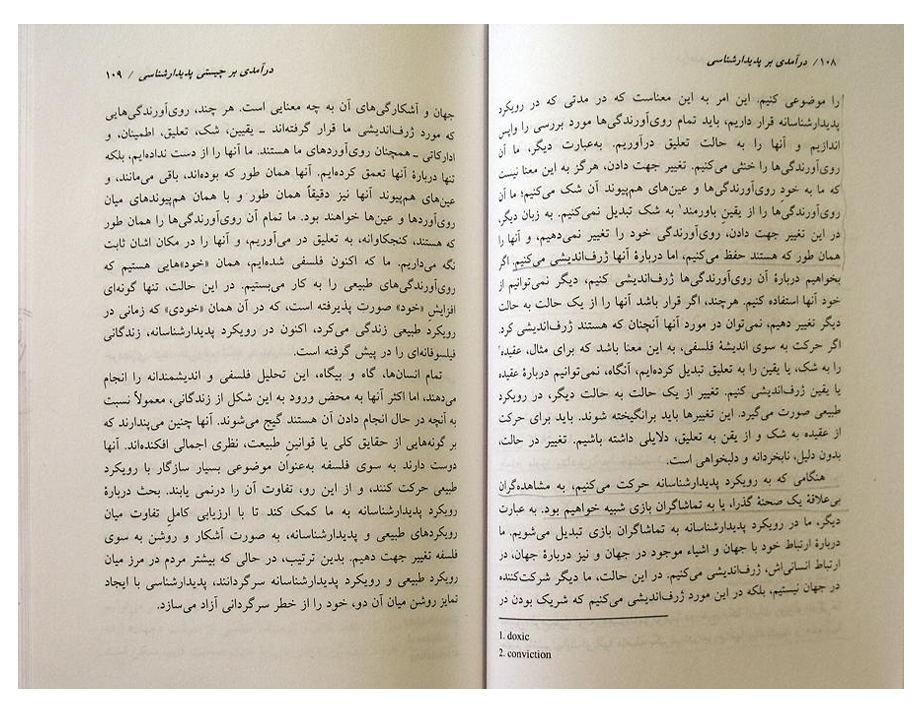 ۱۰۸/ درآمدی بر پدیدارشناسی
را موضوعی کنیم. این امر به این معناست که در مدتی که در رویکرد
پدیدارشناسانه قرار داریم، باید تمام روی‌آورندگی‌ها مورد بررسی را واپس
اندازیم و آنها را به حالت تعلیق درآوریم. به‌عبارت دیگر، ما آن
روی‌آورندگی‌ها را خنثی می‌کنیم. تغییر جهت دادن، هرگز به این معنا نیست
که ما به خودِ روی‌آورندگی‌ها و عین‌های هم‌پیوند آن شک می‌کنیم؛ ما آن
روی‌آورندگی‌ها را از یقینِ باورمند۱ به شک تبدیل نمی‌کنیم. به زبان دیگر،
در این تغییر جهت دادن، روی‌آورندگی خود را تغییر نمی‌دهیم، و آنها را
همان طور که هستند حفظ می‌کنیم، اما دربارهٔ آنها ژرف‌اندیشی می‌کنیم. اگر
بخواهیم دربارهٔ آن روی‌آورندگی‌ها ژرف‌اندیشی کنیم، دیگر نمی‌توانیم از
خود آنها استفاده کنیم. هرچند، اگر قرار باشد آنها را از یک حالت به حالت
دیگر تغییر دهیم، نمی‌توان در مورد آنها آنچنان که هستند ژرف‌اندیشی کرد.
اگر حرکت به سوی اندیشهٔ فلسفی، به این معنا باشد که برای مثال، عقیده۲
را به شک، یا یقین را به تعلیق تبدیل کرده‌ایم، آنگاه، نمی‌توانیم دربارهٔ عقیده
یا یقین ژرف‌اندیشی کنیم. تغییر از یک حالت به حالت دیگر، در رویکرد
طبیعی صورت می‌گیرد. این تغییرها باید برانگیخته شوند. باید برای حرکت
از عقیده به شک و از یقن به تعلیق، دلایلی داشته باشیم. تغییر در حالت،
بدون دلیل، نابخردانه و دلبخواهی است.
هنگامی که به رویکرد پدیدارشناسانه حرکت می‌کنیم، به مشاهده‌گران
بی‌علاقهٔ یک صحنهٔ گذرا، یا به تماشاگران بازی شبیه خواهیم بود. به عبارت
دیگر، ما در رویکرد پدیدارشناسانه به تماشاگران بازی تبدیل می‌شویم. ما
دربارهٔ ارتباط خود با جهان و اشیاء موجود در جهان و نیز دربارهٔ جهان، در
ارتباط انسانی‌اش، ژرف‌اندیشی می‌کنیم. در این حالت، ما دیگر شرکت‌کننده
در جهان نیستیم، بلکه در این مورد ژرف‌اندیشی می‌کنیم که شریک بودن در
1. doxic
2. conviction
درآمدی بر چیستی پدیدارشناسی / ۱۰۹
جهان و آشکارگی‌های آن به چه معنایی است. هر چند، روی‌آورندگی‌هایی
که مورد ژرف‌اندیشی ما قرار گرفته‌اند ــ یقیین، شک، تعلیق، اطمینان، و
ادارکاتی ــ همچنان روی‌آوردهای ما هستند. ما آنها را از دست نداده‌ایم، بلکه
تنها دربارهٔ آنها تعمق کرده‌ایم. آنها همان طور که بوده‌اند، باقی می‌مانند، و
عین‌های هم‌پیوند آنها نیز دقیقاً همان طور و با همان هم‌پیوندهای میان
روی‌آوردها و عین‌ها خواهند بود. ما تمام آن روی‌آورندگی‌ها را همان طور
که هستند، کنجکاوانه، به تعلیق در می‌آوریم، و آنها را در مکان اشان ثابت
نگه می‌داریم. ما که اکنون فلسفی شده‌ایم، همان «خود»هایی هستیم که
روی‌آورندگی‌های طبیعی را به کار می‌بستیم. در این حالت، تنها گونه‌ای
افزایشِ «خود» صورت پذیرفته است، که در آن همان «خودی» که زمانی در
رویکرد طبیعی زندگی می‌کرد، اکنون در رویکرد پدیدارشناسانه، زندگانی
فیلسوفانه‌ای را در پیش گرفته است.
تمام انسان‌ها، گاه و بیگاه، این تحلیل فلسفی و اندیشمندانه را انجام
می‌دهند، اما اکثر آنها به محض ورود به این شکل از زندگانی، معمولاً نسبت
به آنچه در حال انجام دادن آن هستند گیج می‌شوند. آنها چنین می‌پندارند که
بر گونه‌هایی از حقایق کلی یا قوانینِ طبیعت، نظری اجمالی افکنده‌اند. آنها
دوست دارند به سوی فلسفه به‌عنوان موضوعی بسیار سازگار با رویکرد
طبیعی حرکت کنند، و از این رو، تفاوت آن را درنمی یابند. بحث دربارهٔ
رویکرد پدیدارشناسانه به ما کمک کند تا با ارزیابی کاملِ تفاوت میان
رویکردهای طبیعی و پدیدارشناسانه، به صورت آشکار و روشن به سوی
فلسفه تغییر جهت دهیم. بدین ترتیب، در حالی که بیشتر مردم در مرز میان
رویکرد طبیعی و رویکرد پدیدارشناسانه سرگردانند، پدیدارشناسی با ایجاد
تمایز روشن میان آن دو، خود را از خطر سرگردانی آزاد می‌سازد.